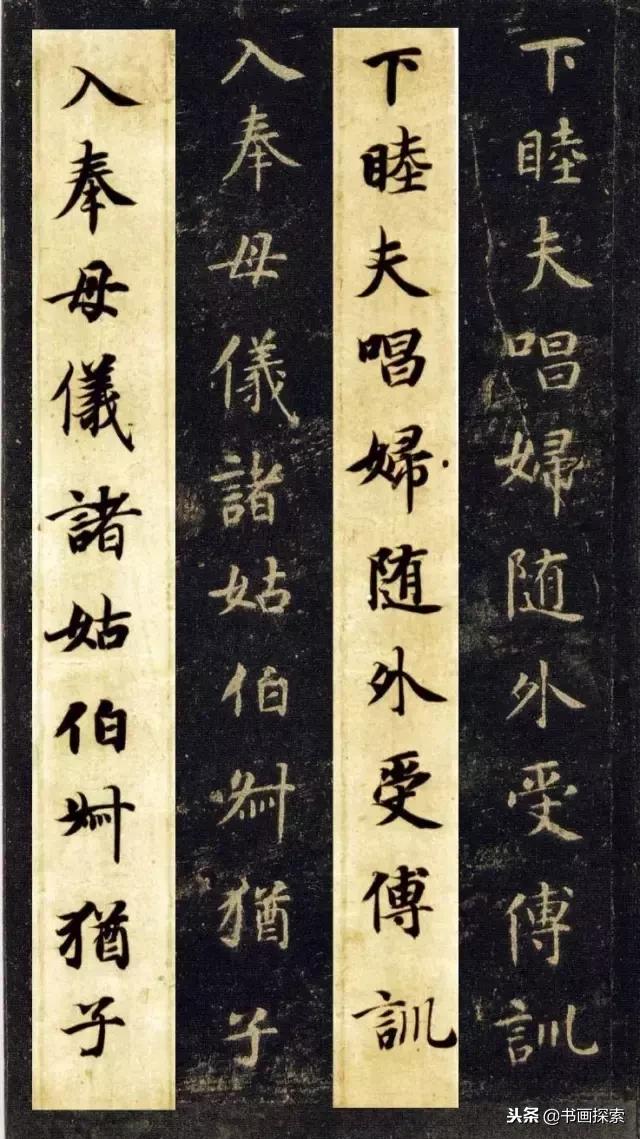 下睦夫唱婦随外受傅訓
下睦夫唱婦随外受傅訓
入奉母儀諸姑伯叔猶子
入奉母儀諸姑伯叔猶子
头条@书画探索